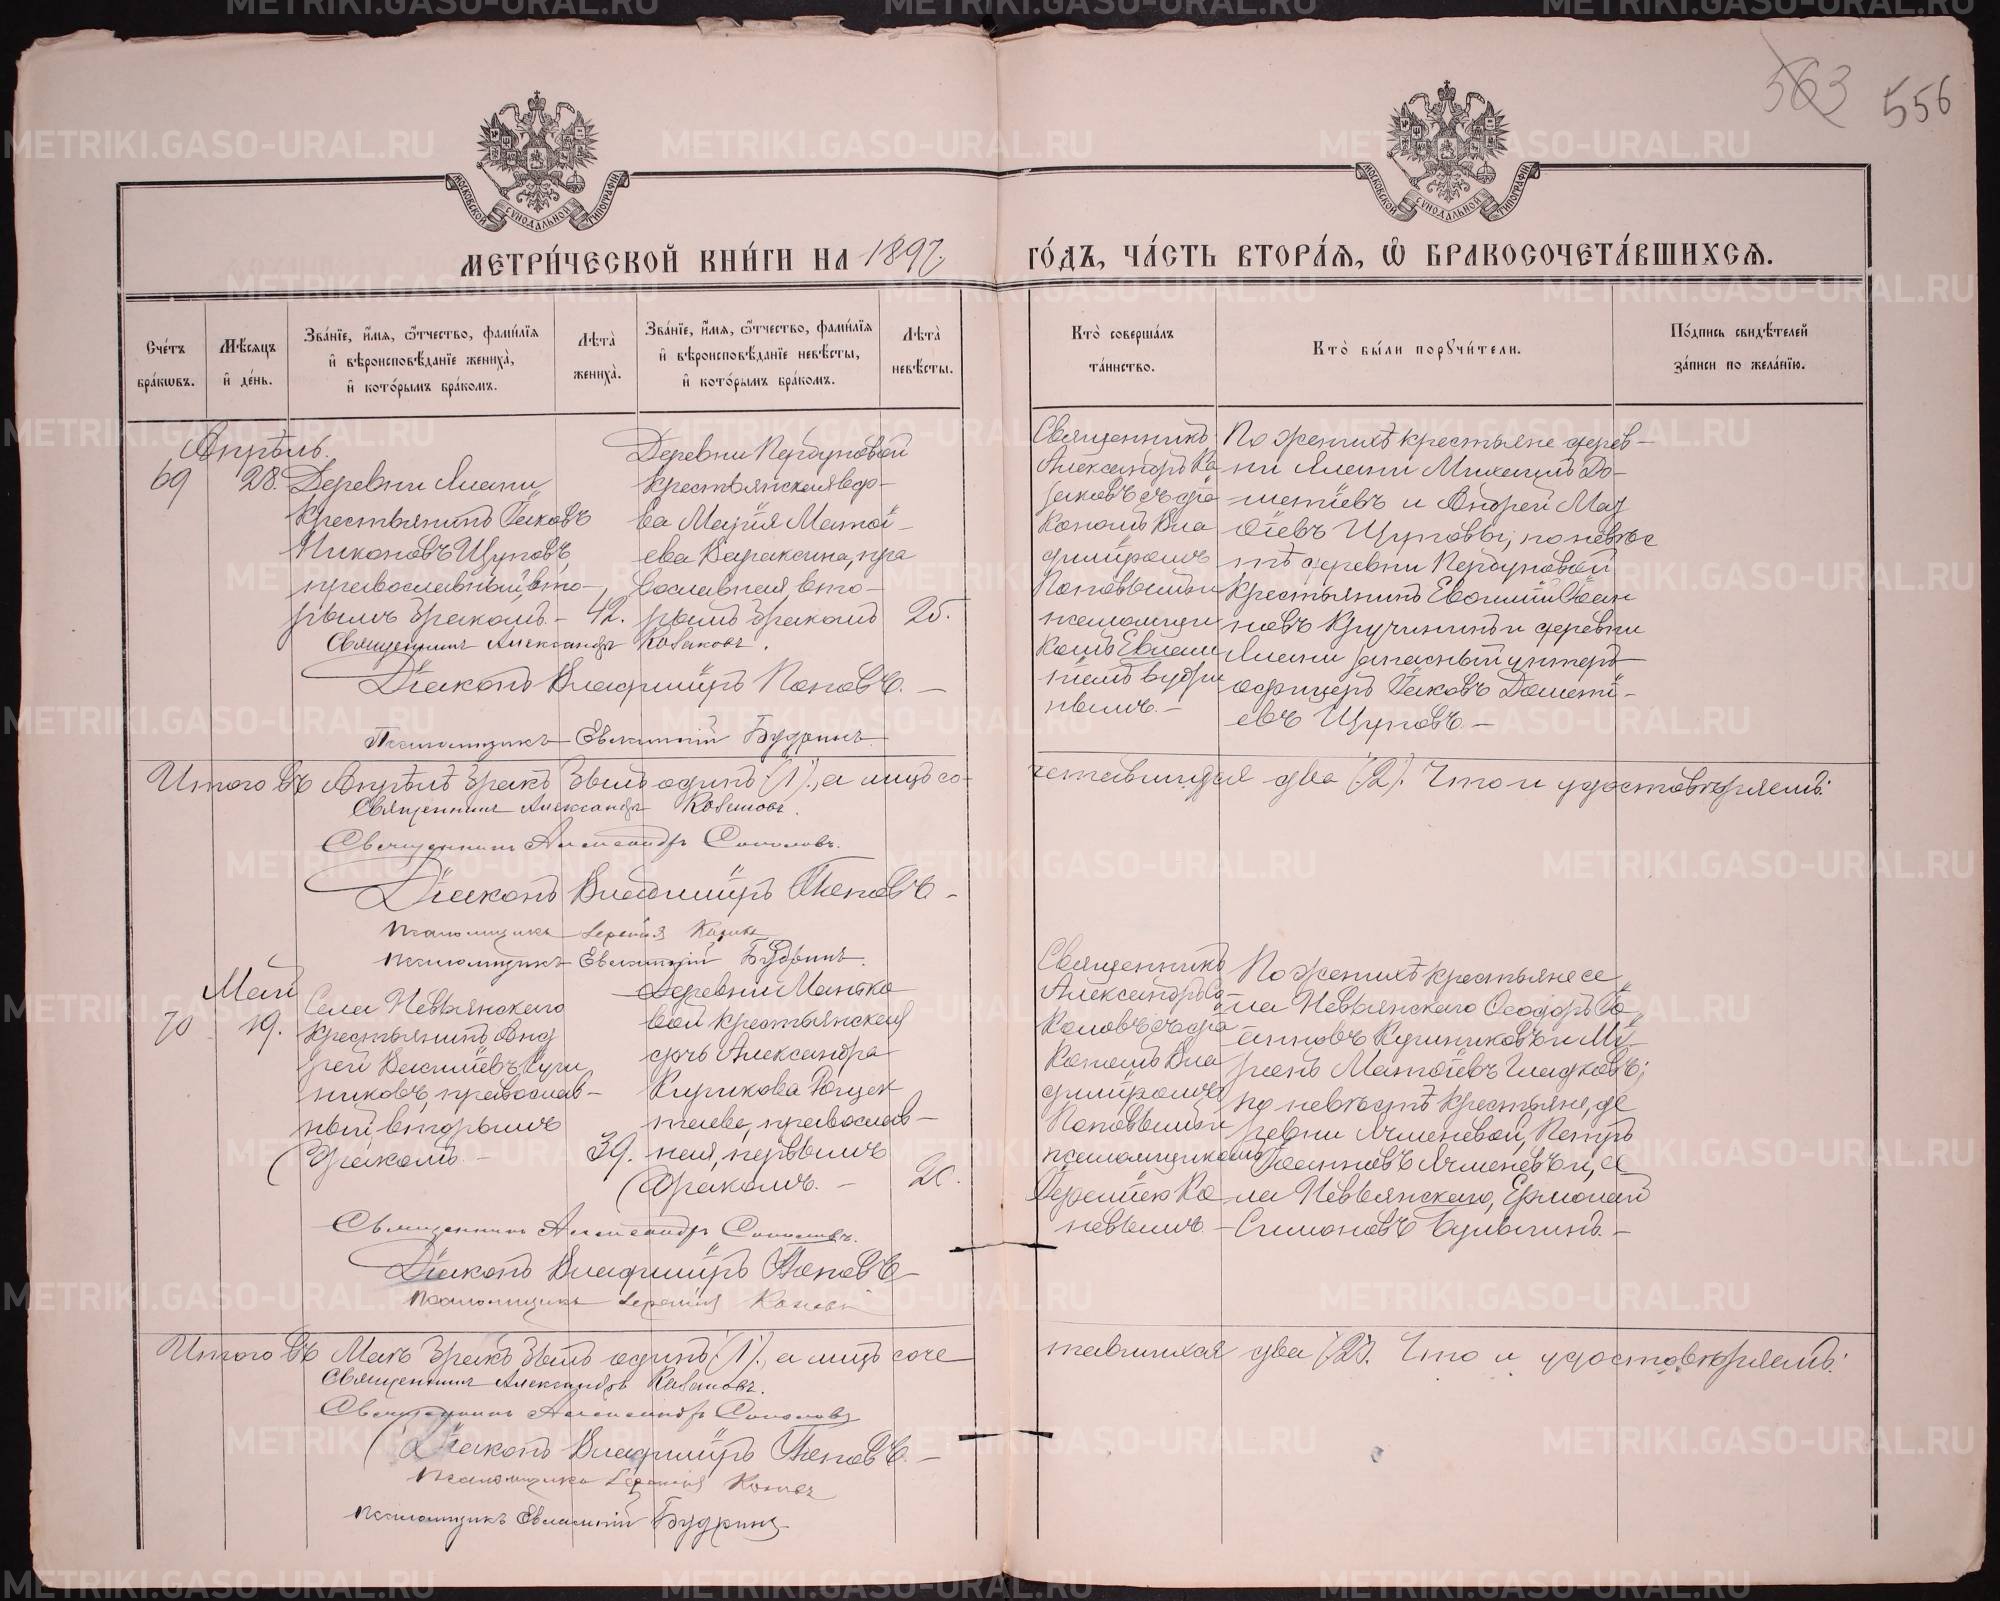 563 556
МОСКОВСКОЙ СѴНОДАЛЬНОЙ ТИПОГРАФІИ
МОСКОВСКОЙ СѴНОДАЛЬНОЙ ТИПОГРАФІИ
МЕТРИ́ЧЕСКОЙ КНИ́ГИ НА 1897
ГО́ДЪ, ЧА́СТЬ ВТОРА́Я, Ѡ БРАКОСОЧЕТА́ВШИХСЯ.
Сче́тъ бра́кωвъ.
Мѣ́сяцъ и҆ де́нь.
Зва́нїе, и҆́мя, ѻ҆́тчество, фами́лїя
и҆ вѣроисповѣ́данїе жениха̀,
и҆ кото́рымъ бра́комъ.
Лѣта̀ жениха̀.
Зва́нїе, и҆́мя, ѻ҆́тчество, фами́лїя
и҆ вѣроисповѣ́данїе невѣ́сты,
и҆ кото́рымъ бра́комъ.
Лѣта̀ невѣ́сты.
Кто̀ соверша́лъ та́инство.
Кто̀ бы́ли порꙋчи́тели.
По́дпись свидѣ́телей
за́писи по жела́нїю.
Апрѣль.
69 28.
Деревни Ялани
крестьянинъ Іаковъ
Никоновъ Щуповъ,
православный, вто-
рымъ бракомъ. – 42.
Деревни
крестьянская вдо-
ва Марія Матѳі-
ева Вараксина, пра
вославная, вто-
рымъ бракомъ 25.
Священникъ
Александръ Ка
заковъ съ діа
кономъ Вла
диміромъ
Поповымъ и
псаломщи
комъ Евлам
піемъ Будри
нымъ. –
По женихѣ крестьяне дерев-
ни Ялани Михаилъ До-
метіевъ и Андрей Мат
ѳіевъ Щуповы, по невѣс
тѣ деревни
крестьянинъ Евѳимій Іоан
новъ Кручининъ и деревни
Ялани запасный унтеръ
офицеръ Іаковъ Дометі-
евъ Щуповъ. –
Священникъ Александръ Казаковъ.
Діаконъ Владиміръ Поповъ. –
Псаломщикъ Евлампій Будринъ.
Итого въ Апрѣлѣ бракъ былъ одинъ (1), а лицъ со-
четавшихся два (2). Что и удостовѣряемъ:
Священникъ Александръ Казаковъ.
Священникъ Александръ Соколовъ.
Діаконъ Владиміръ Поповъ. –
Псаломщикъ Іеремія
Псаломщикъ Евлампій Будринъ.
Май
70 19.
Села Невьянскаго
крестьянинъ Анд
рей
никовъ, православ-
ный, вторымъ
бракомъ. – 39.
Деревни
вой крестьянская
дочь Александра
Кирикова
таева, православ-
ная, первымъ
бракомъ. –
Священникъ
Александръ Со
коловъ съ діа
кономъ Вла
диміромъ
Поповымъ и
псаломщикомъ
Іереміею Ко
невымъ. –
По женихѣ крестьяне се
ла Невьянскаго Ѳеодоръ Іо
анновъ и Ми
ронъ Матѳіевъ Гладковъ;
по невѣстѣ крестьяне, де
ревни Ячменевой, Петръ
Іоанновъ Ячменевъ и, се
ла Невьянскаго, Ермолай
Симоновъ Булыгинъ. –
Священникъ Александръ Соколовъ.
Діаконъ Владиміръ Поповъ
Псаломщикъ Іеремія
Итого въ Маѣ бракъ былъ одинъ (1), а лицъ соче
тавшихся два (2). Что и удостовѣряемъ:
Священникъ Александръ Казаковъ.
Священникъ Александръ Соколовъ
Діаконъ Владиміръ Поповъ. –
Псаломщикъ Іеремія Коневъ
Псаломщикъ Евлампій Будринъ
METRIKI.GASO-URAL.RU